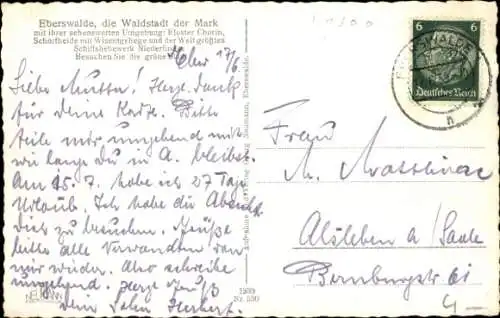 Eberswalde, die Waldstadt der Mark
mit ihrer sehenswerten Umgebung: Kloster Chorin,
Schorfheide mit Wisentgehege und der Welt größtes
Schiffshebewerk Niederfinow
Besuchen Sie die grüne
Ebw 17/6
Liebe Mutter! Herzl. Dank
für deine Karte. Bitte
teile mir umgehend mit
wie lange du in A. bleibst.
Am 15. 7. habe ich 27 Tage
Urlaub. Ich habe die Absicht
dich zu besuchen. Grüße
bitte alle Verwandten von
mir wieder. Also schreibe
umgehend. Herzl. Gruß
Dein Sohn Herbert.
6 6
Deutsches Reich
EBERSWALDE
n
Frau
M.
Alsleben a/ Saale
Bernburgstr 61
Nr. 550